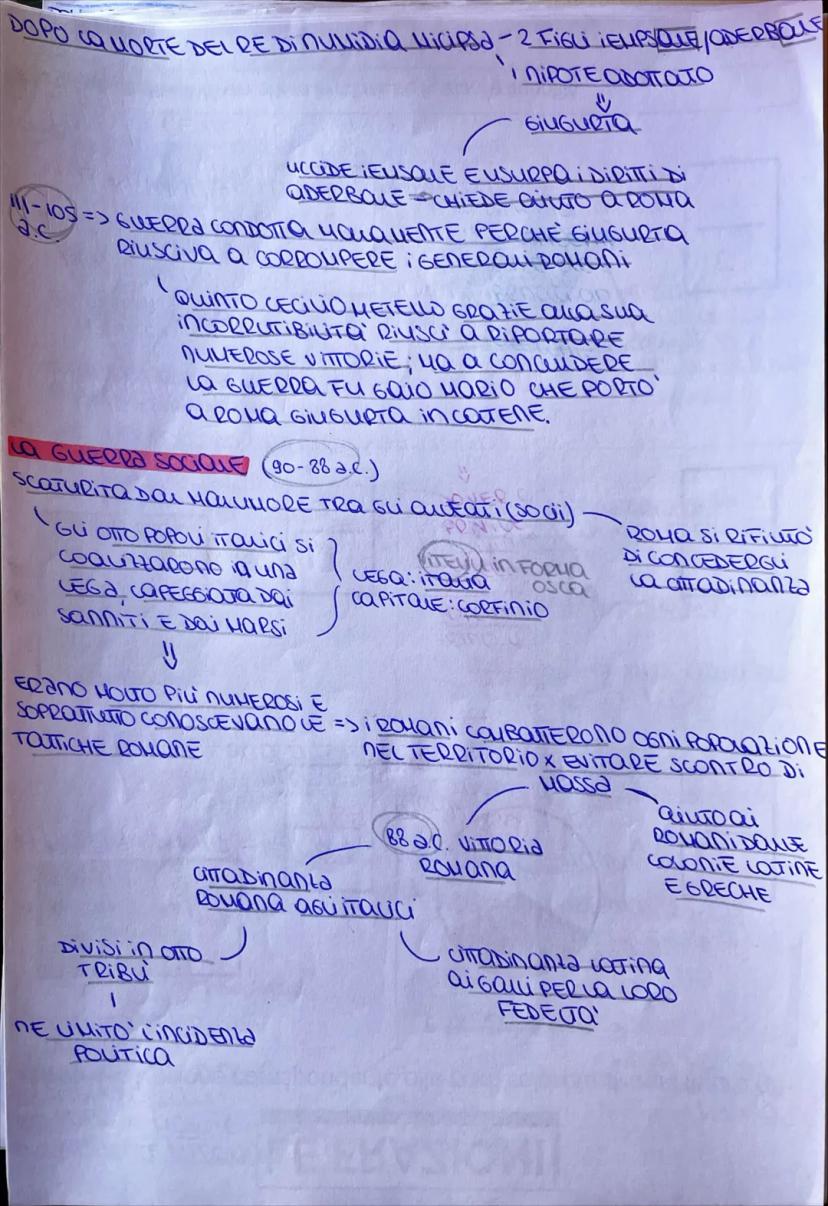 DOPO LA MORTE DEL RE DI NUMIDIA MICIPSA - 2 FIGLI IEMPSALE/ADERBALE
1 NIPOTE ADOTTATO
⇓
GIUGURTA
UCCIDE IEMSALE E USURPA I DIRITTI DI
ADERBALE → CHIEDE AIUTO A ROMA
111-105 a.C. => GUERRA CONDOTTA MALAMENTE PERCHÈ GIUGURTA
RIUSCIVA A CORROMPERE I GENERALI ROMANI
QUINTO CECILIO METELLO GRAZIE ALLA SUA
INCORRUTIBILITÀ RIUSCÌ A RIPORTARE
NUMEROSE VITTORIE; MA A CONCLUDERE
LA GUERRA FU GAIO MARIO CHE PORTÒ
A ROMA GIUGURTA IN CATENE.
LA GUERRA SOCIALE (90-88 a.C.)
SCATURITA DAL MALUMORE TRA GLI ALLEATI (SOCII)
ROMA SI RIFIUTÒ
DI CONCEDERGLI
LA CITTADINANZA
GLI OTTO POPOLI ITALICI SI
COALIZZARONO IN UNA
LEGA, CAPEGGIATA DAI
SANNITI E DAI MARSI
VITELIU IN FORMA
OSCA
LEGA: ITALIA
CAPITALE: CORFINIO
⇓
ERANO MOLTO PIÙ NUMEROSI E
SOPRATUTTO CONOSCEVANO LE => I ROMANI COMBATTERONO OGNI POPOLAZIONE
TATTICHE ROMANE
NEL TERRITORIO X EVITARE SCONTRO DI
MASSA
AIUTO AI
ROMANI DALLE
COLONIE LATINE
E GRECHE
88 a.C. VITTORIA
ROMANA
CITTADINANZA
ROMANA AGLI ITALICI
DIVISI IN OTTO
TRIBÙ
NE LIMITÒ L'INCIDENZA
POLITICA
CITTADINANZA LATINA
AI GALLI PER LA LORO
FEDELTÀ
LE FRAZIONI